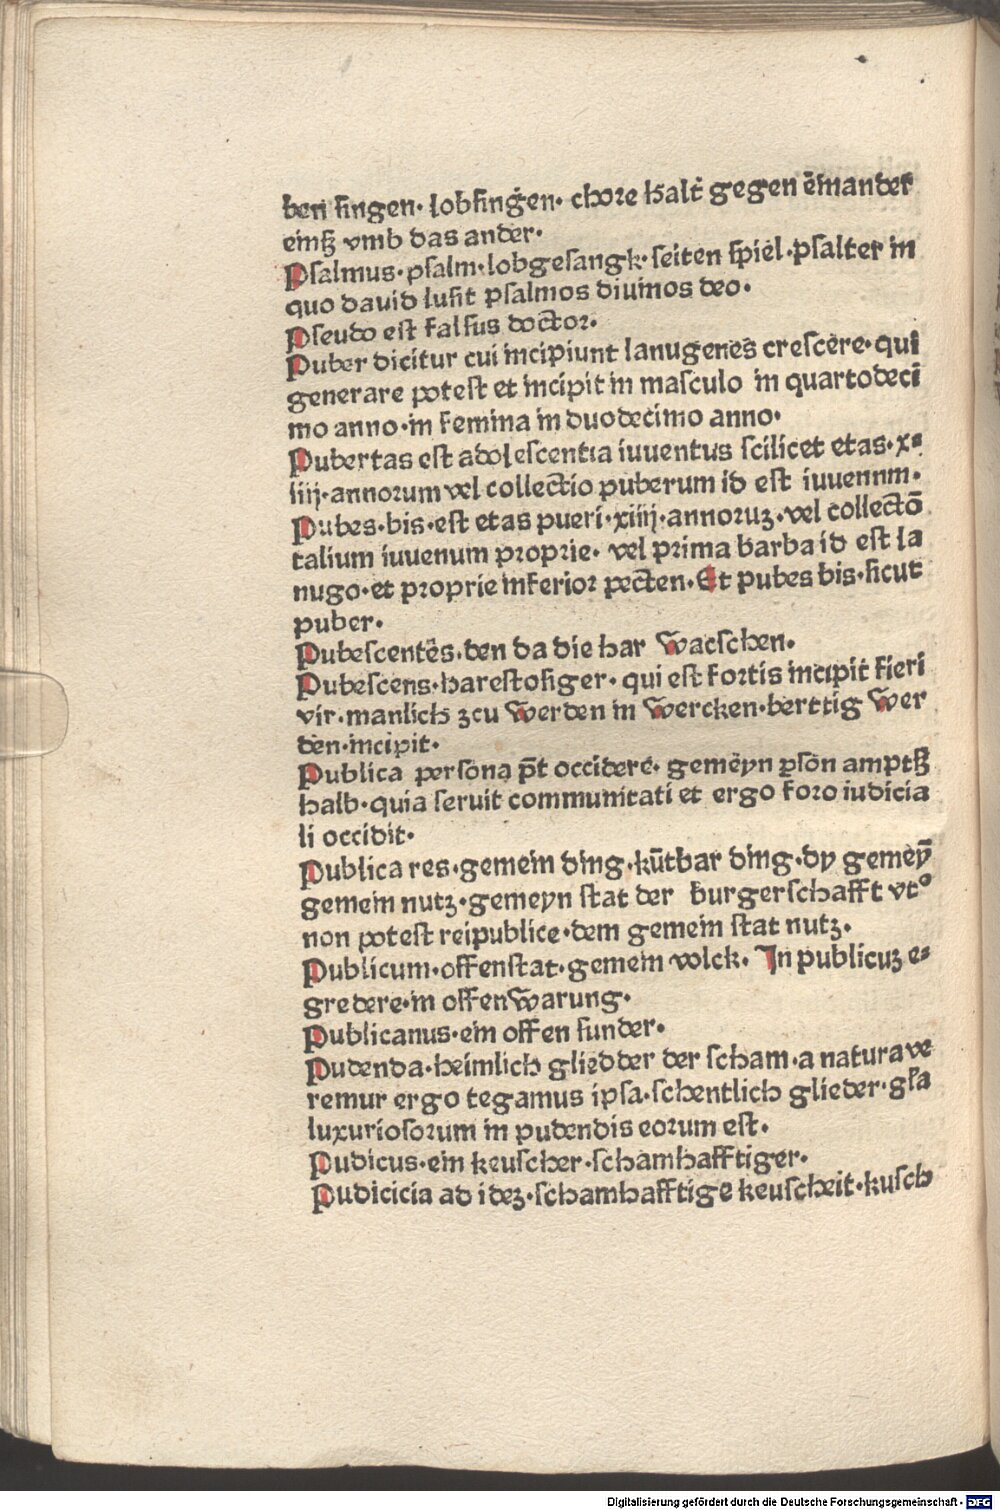 ben ſingen· lobſingen· chore halt gegen ēinander
einſz vmb das ander·
Pſalmus·pſalm·lobgeſangk·ſeiten ſpiel·pſalter in
quo dauid luſit pſalmos diuinos deo·
Pſeudo eſt falſus doctor·
Puber dicitur cui incipiunt lanugenes creſcere·qui
generare poteſt et incipit in maſculo in quartodeci
mo anno·in femina in duodecimo anno·
Pubertas eſt adoleſcentia iuuentus ſcilicet etas·x⸗
liij·annorum vel collectio puberum id eſt iuuennm·
Pubes·bis·eſt etas pueri·xiiij·annoruʒ·vel collectō
talium iuuenum proprie· vel prima barba id eſt la
nugo·et proprie inferior pecten·Et pubes bis·ſicut
puber·
Pubeſcentes·den da die har wacſchen·
Pubeſcens·hareſtoſiger·qui eſt fortis incipit fieri
vir·manlich zcu werden in wercken·berttig wer
den·incipit·
Publica perſona p̄t occidere·gemeyn ꝑſon amptſz
halb·quia ſeruit communitati et ergo foro iudicia
li occidit·
Publica res·gemein ding·kūtbar ding·dy gemeȳ
gemein nutz·gemeyn ſtat der burgerſchafft vtꝰ
non poteſt reipublice·dem gemein ſtat nutz·
Publicum·offenſtat·gemein volck· In publicuʒ e⸗
gredere·in offenwarung·
Publicanus·ein offen ſunder·
Pudenda·heimlich gliedder der ſcham·a natura ve
remur ergo tegamus ipſa·ſchentlich glieder·gl̄a
luxurioſorum in pudendis eorum eſt·
Pudicus·ein keuſcher·ſchamhafftiger·
Pudicicia ad ideʒ·ſchamhafftige keuſcheit·kuſch
Digitalisierung gefördert durch die Deutsche Forschungsgemeinschaft - DFG